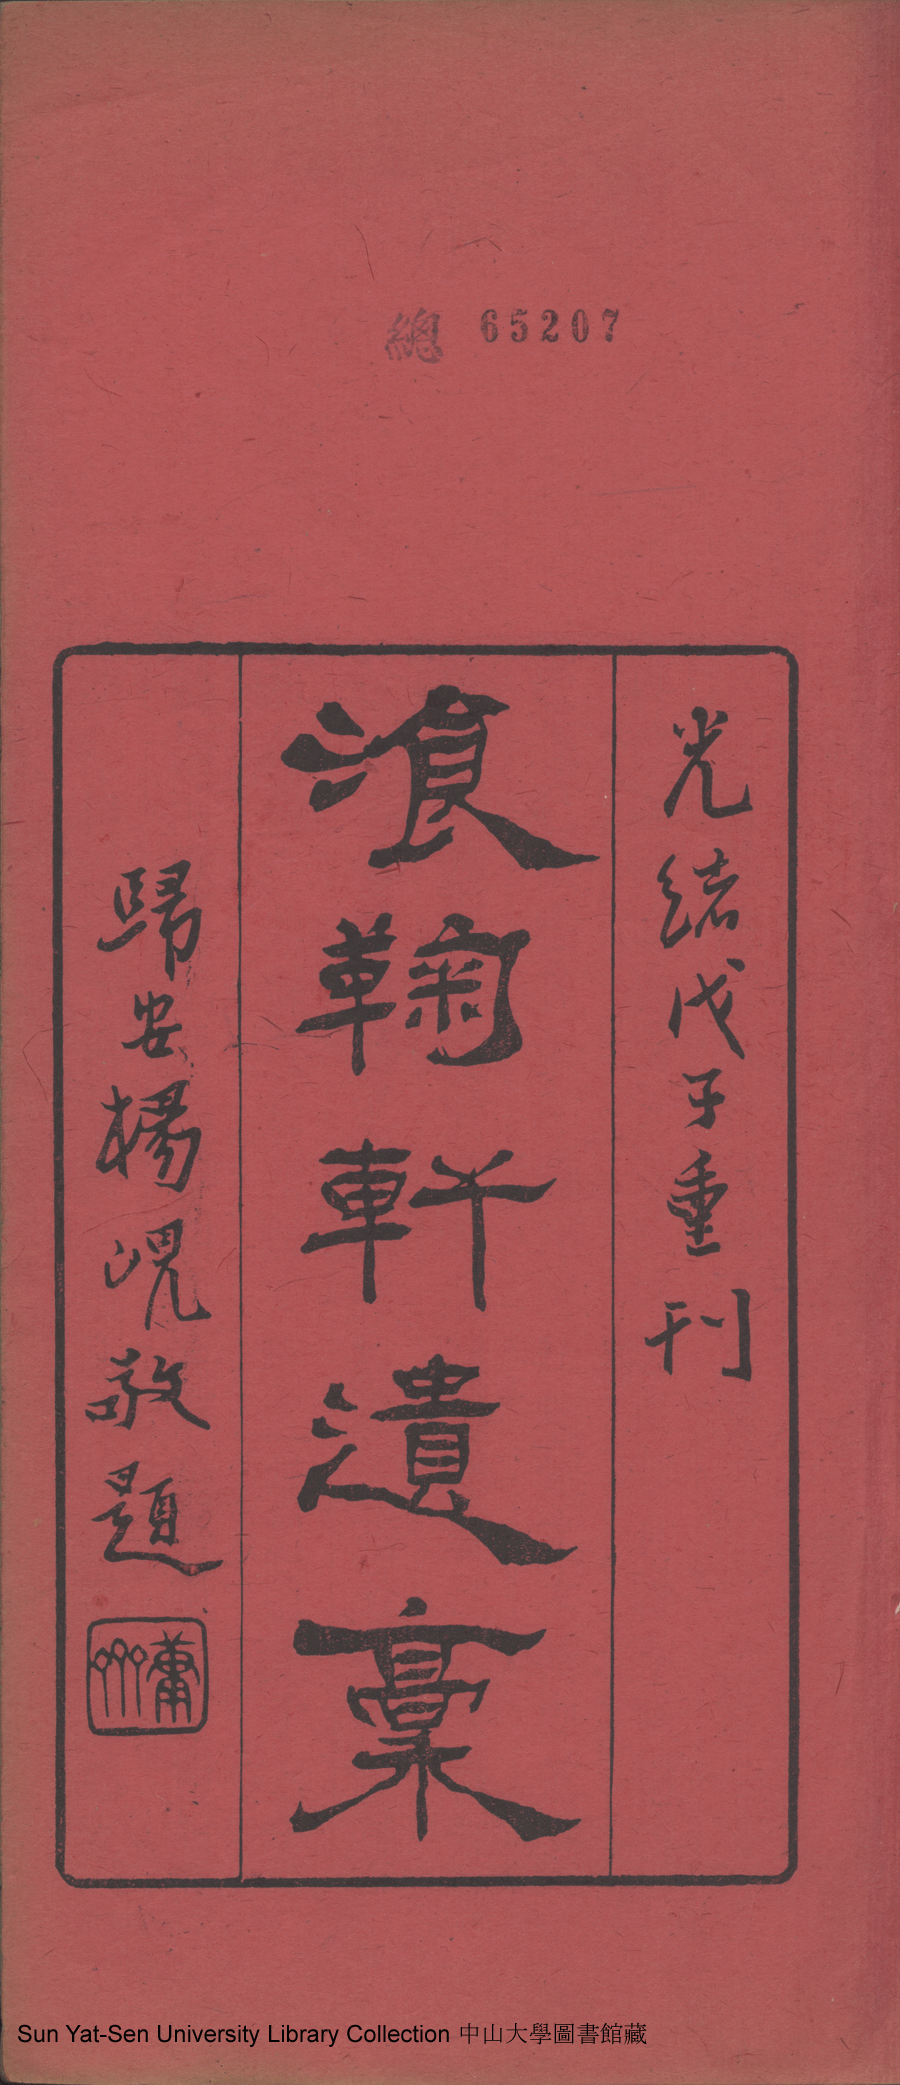 總 65207
光緒戊子重刊
湌鞠軒遺稾
歸安楊峴敬題
Sun Yat-Sen University Library Collection 中山大學圖書館藏